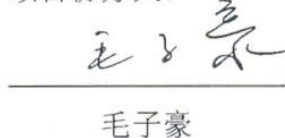 毛子豪
毛子豪